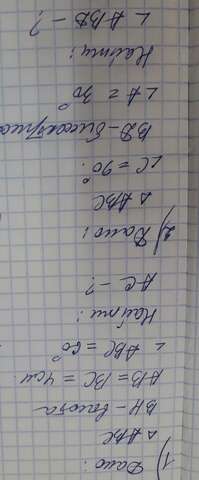 1) Дано:
△ ABC
BH - высота
AB = BC = 4см
∠ ABC = 60°
Найти:
AC - ?
2) Дано:
△ ABC
∠C = 90°
BD - биссектриса
∠A = 30°
Найти:
∠ ABD - ?